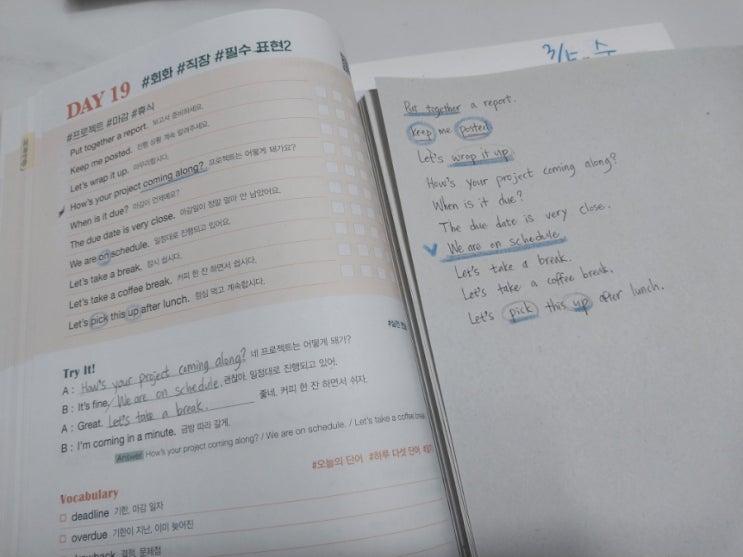 DAY 19 #회화 #직장 #필수 표현2
#프로젝트 #마감 #휴식
Put together a report. 보고서 준비하세요.
Keep me posted. 진행 상황 계속 알려주세요.
Let's wrap it up. 마무리합시다.
How's your project coming along? 프로젝트는 어떻게 돼가요?
When is it due? 마감이 언제예요?
The due date is very close. 마감일이 정말 얼마 안 남았어요.
We are on schedule. 일정대로 진행되고 있어요.
Let's take a break. 잠시 쉽시다.
Let's take a coffee break. 커피 한 잔 하면서 쉽시다.
Let's pick this up after lunch. 점심 먹고 계속합시다.
Try It!
A : How's your project coming along? 네 프로젝트는 어떻게 돼가?
B : It's fine, We are on schedule. 괜찮아. 일정대로 진행되고 있어.
A : Great. Let's take a break. 좋네. 커피 한 잔 하면서 쉬자.
B : I'm coming in a minute. 금방 따라 갈게.
Answer How's your project coming along? / We are on schedule. / Let's take a coffee break.
#오늘의 단어 #하루 다섯 단어
Vocabulary
deadline 기한, 마감 일자
overdue 기한이 지난, 이미 늦어진
결점, 문제점
3/5. 수
Put together a report.
Keep me posted
Let's wrap it up.
How's your project coming along?
When is it due?
The due date is very close.
We are on schedule.
Let's take a break.
Let's take a coffee break.
Let's pick this up after lunch.